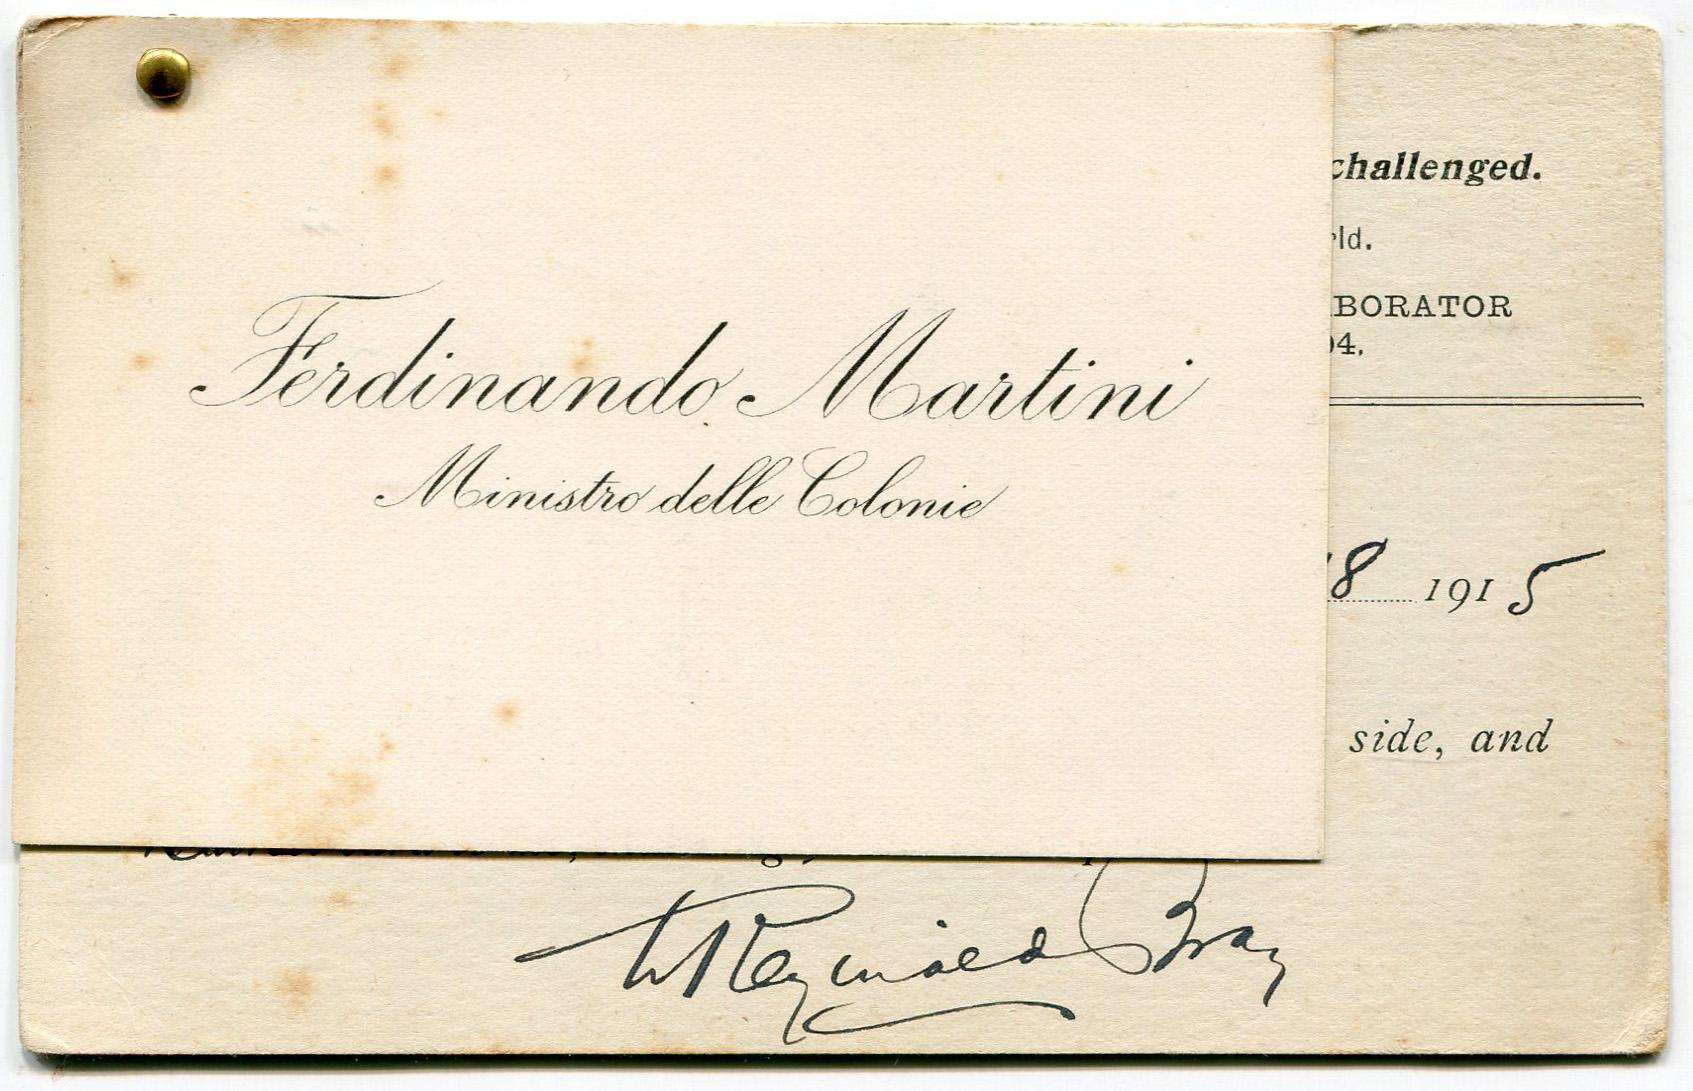 challenged.
rld.
BORATOR
04.
Ferdinando Martini
Ministro delle Colonie
18 1915
side, and
W Reginald Bray